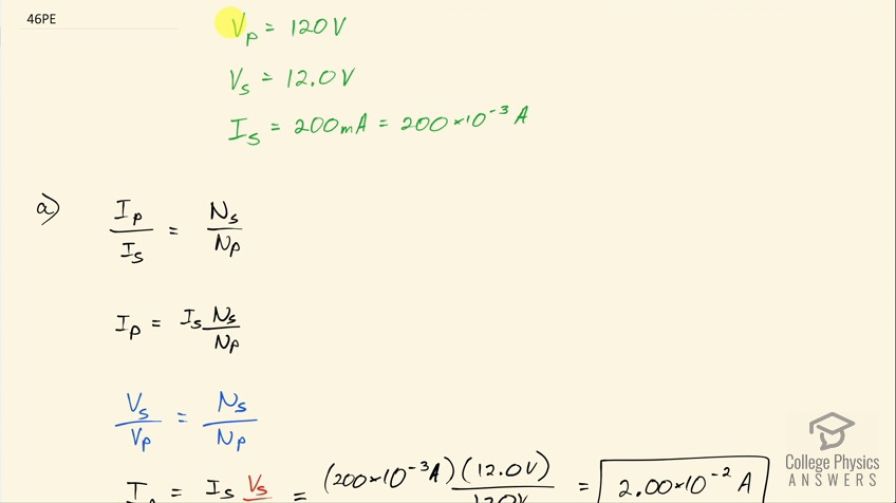 46PE
V_P = 120V
V_s = 12.0V
I_s = 200mA = 200×10^-3 A
a) I_P / I_s = N_s / N_P
I_P = I_s N_s / N_P
V_s / V_P = N_s / N_P
I_P = I_s V_s = (200×10^-3 A)(12.0V) / 120V = 2.00×10^-2 A
College Physics
ANSWERS